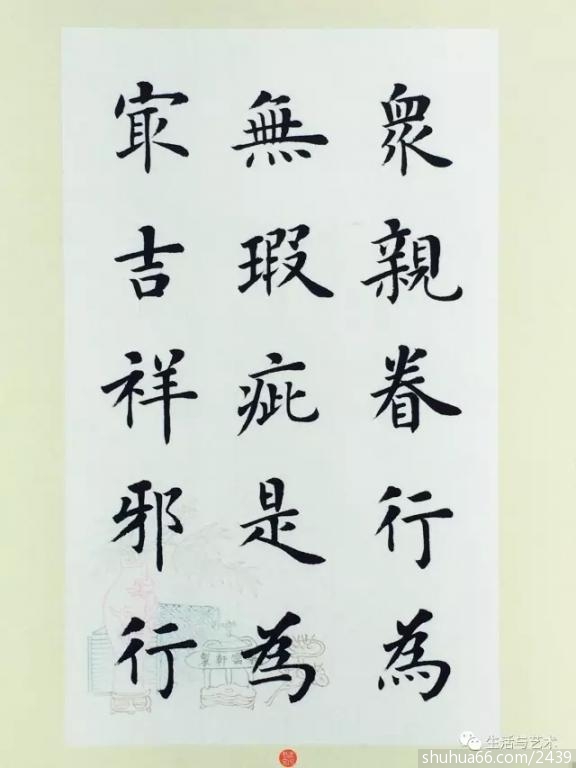 眾親眷行為
無瑕疵是為
冣吉祥邪行
生活与艺术
shuhua66.com/2439